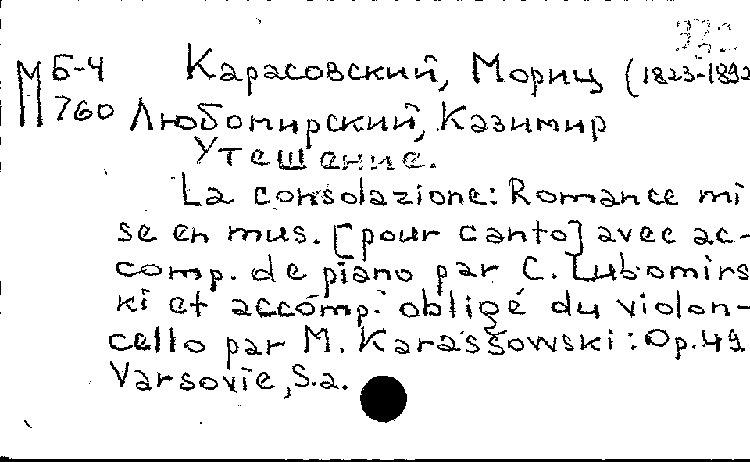 М Б-4 Карасовский, Мориц (1823-1892
760 Любомирский, Казимир
Утешение.
La consolazione: Romance mi
se en mus. [pour canto] avec ac-
comp. de piano par C. Lubomirs
ki et accomp. obligé du violon-
cello par M. Karassowski: Op.49
Varsovie, S.a.